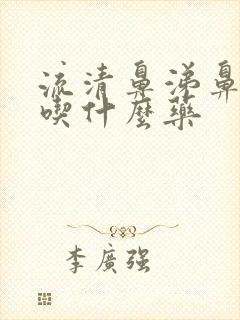 流清鼻涕鼻
喫什麼藥
李廣强